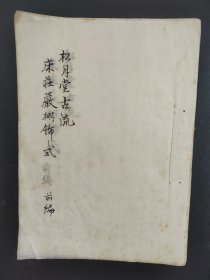 松月堂古流
床荘厳棚飾式 前編